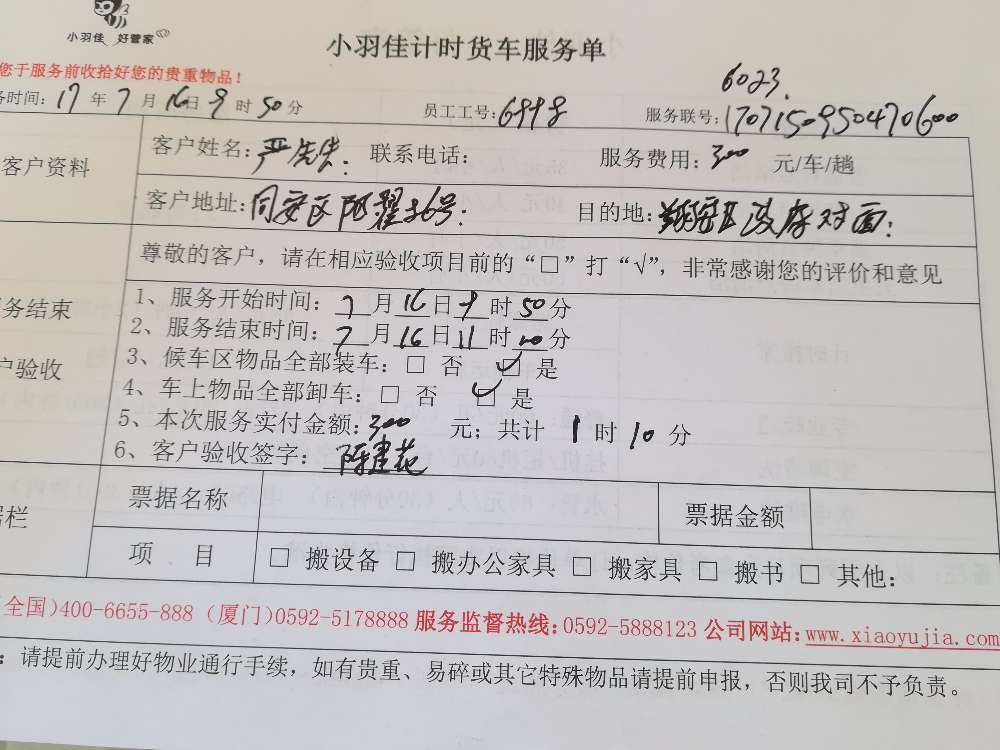 小羽佳 好管家
小羽佳计时货车服务单
您于服务前收拾好您的贵重物品!
6023.
务时间: 17 年 7 月 16 日 9 时 50 分 员工工号: 6998 服务联号: 1707150950470600
客户资料
客户姓名: 严先生. 联系电话: 服务费用: 300 元/车/趟
客户地址: 同安区 36号. 目的地: 翔安区政府对面.
尊敬的客户，请在相应验收项目前的“□”打“√”，非常感谢您的评价和意见
务结束
户验收
1、服务开始时间: 7 月 16 日 9 时 50 分
2、服务结束时间: 7 月 16 日 11 时 00 分
3、候车区物品全部装车: □ 否 ☑ 是
4、车上物品全部卸车: □ 否 ☑ 是
5、本次服务实付金额: 300 元; 共计 1 时 10 分
6、客户验收签字: 陈建花
据栏
票据名称 票据金额
项 目 □ 搬设备 □ 搬办公家具 □ 搬家具 □ 搬书 □ 其他:
(全国)400-6655-888 (厦门)0592-5178888 服务监督热线:0592-5888123 公司网站:www.xiaoyujia.com
: 请提前办理好物业通行手续，如有贵重、易碎或其它特殊物品请提前申报，否则我司不予负责。